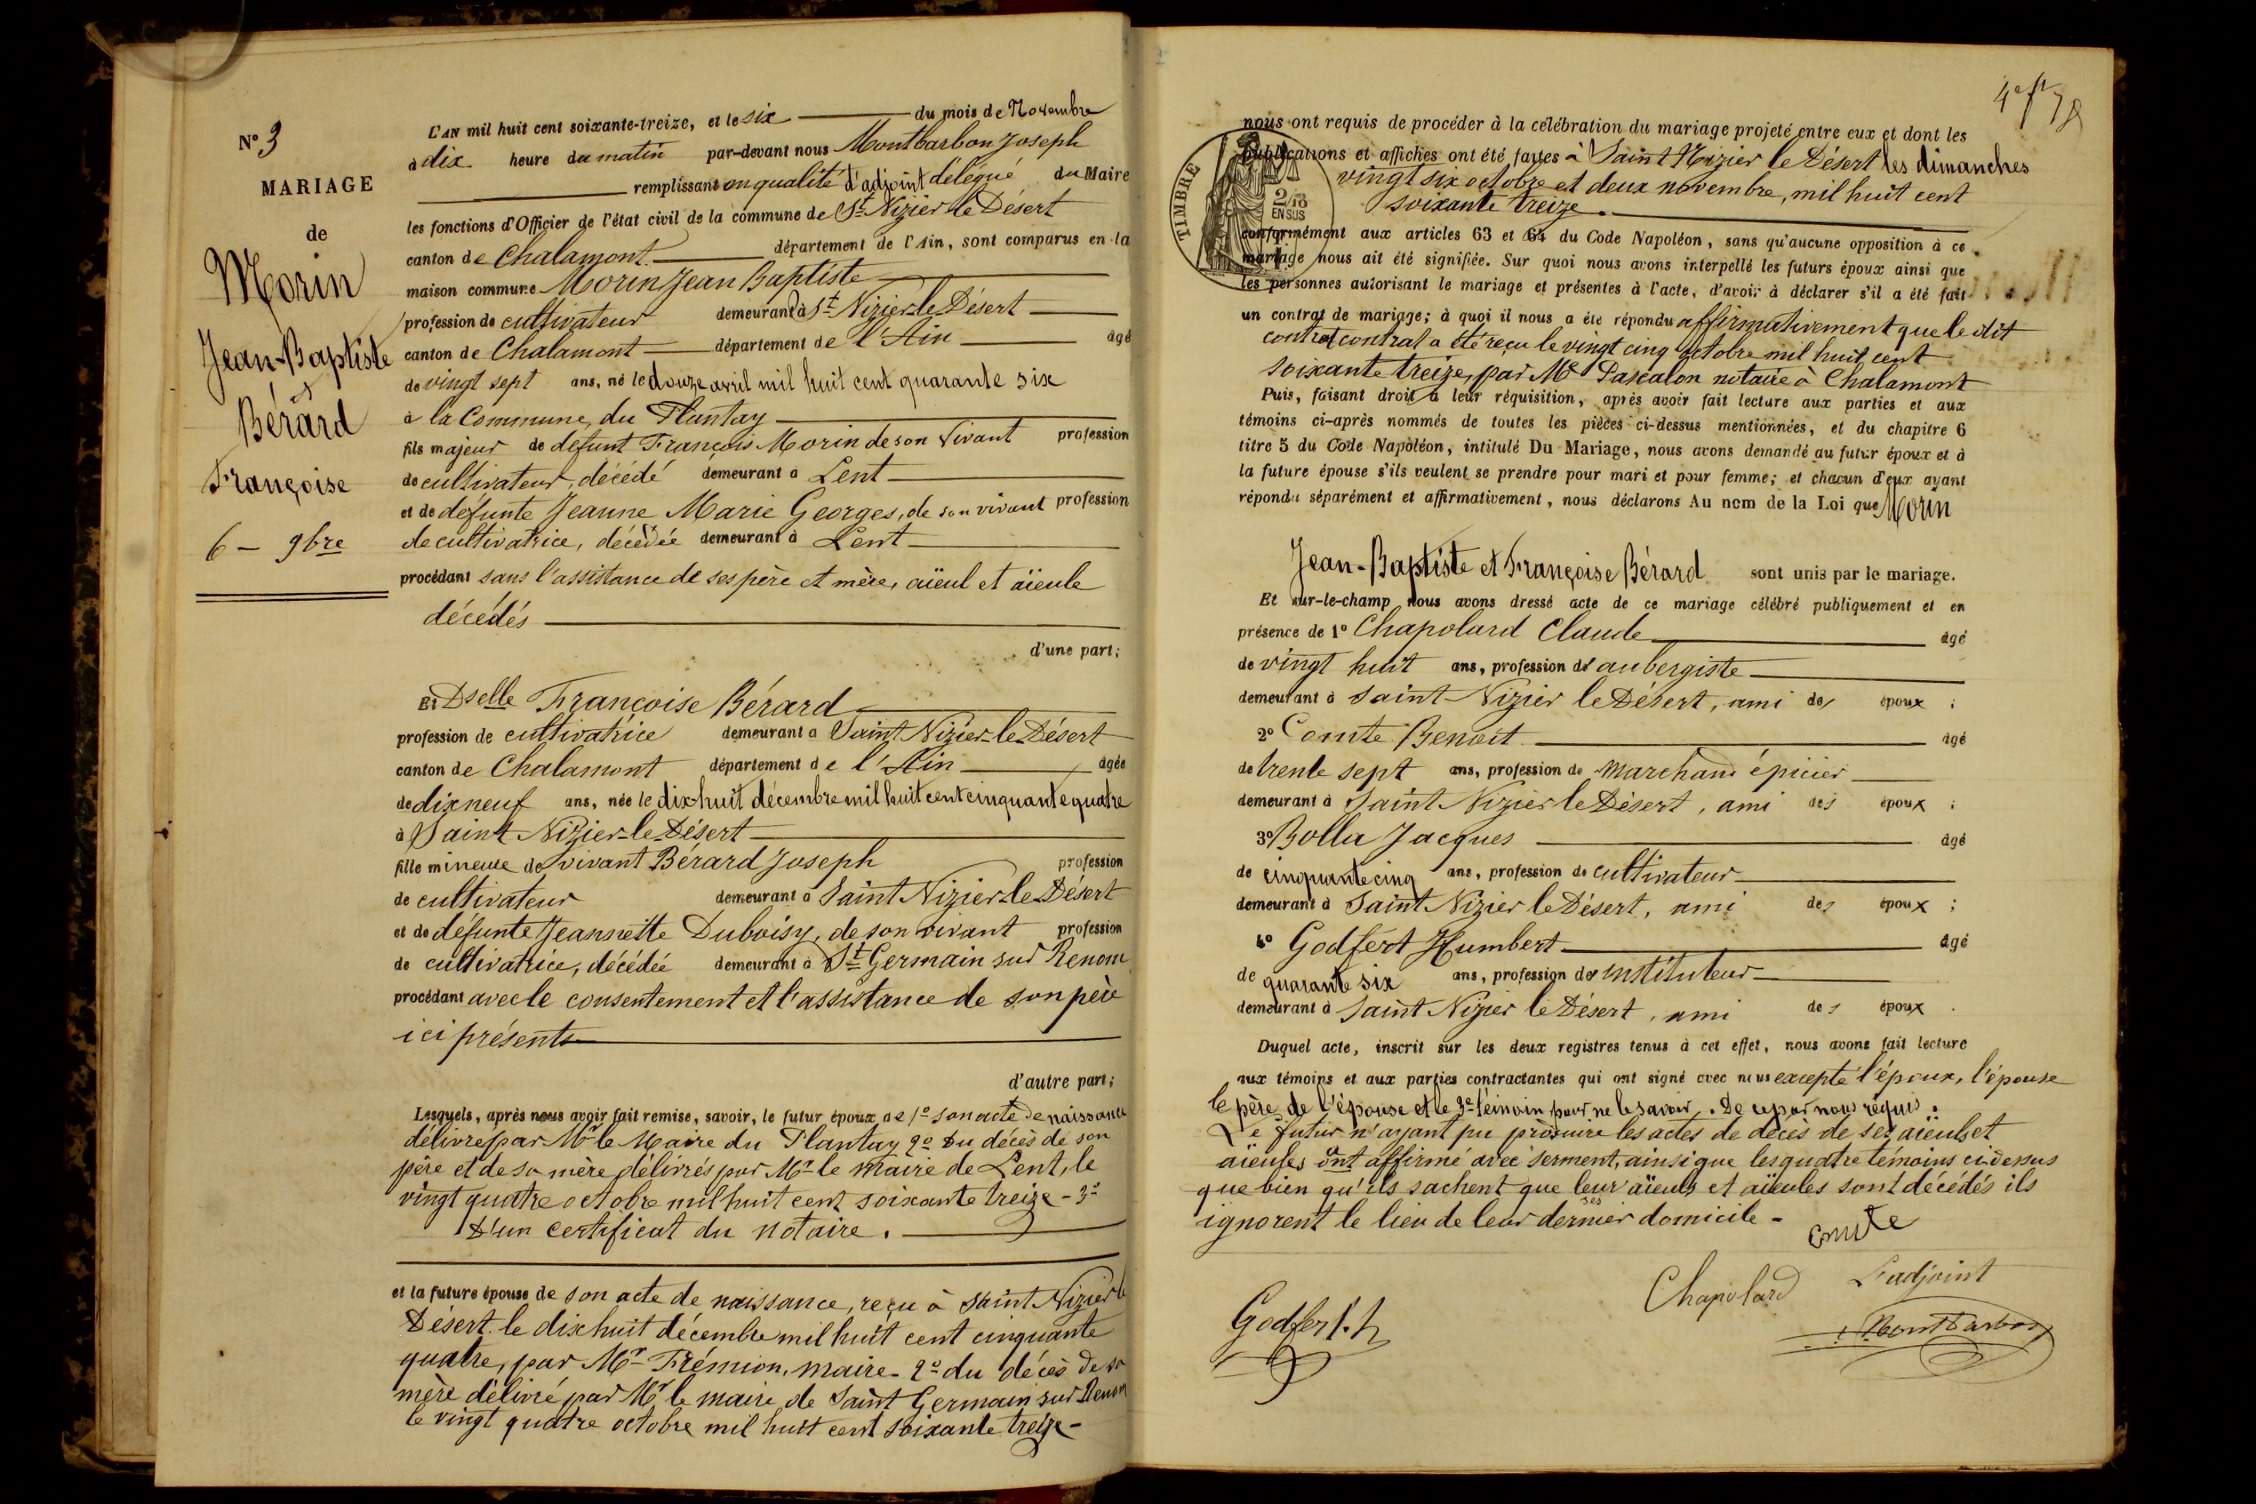 N° 3
MARIAGE
de
Morin
Jean-Baptiste
et
Bérard
Françoise
6 - 9bre
L'AN mil huit cent soixante-treize, et le six du mois de Novembre
à dix heure du matin par-devant nous Montbarbon Joseph
remplissant en qualité d'adjoint délégué du Maire
les fonctions d'Officier de l'état civil de la commune de St Nizier-le-Désert
canton de Chalamont département de l'Ain, sont comparus en la
maison commune Morin Jean Baptiste
profession de cultivateur demeurant à St Nizier-le-Désert
canton de Chalamont département de l'Ain âgé
de vingt sept ans, né le douze avril mil huit cent quarante six
à la Commune du Plantay
fils majeur de défunt François Morin de son vivant profession
de cultivateur, décédé demeurant à Lent
et de défunte Jeanne Marie Georges, de son vivant profession
de cultivatrice, décédée demeurant à Lent
procédant sans l'assistance de ses père et mère, aïeul et aïeule
décédés
d'une part;
Et Dselle Françoise Bérard
profession de cultivatrice demeurant à Saint Nizier-le-Désert
canton de Chalamont département de l'Ain âgée
de dix neuf ans, née le dix-huit décembre mil huit cent cinquante quatre
à Saint Nizier-le-Désert
fille mineure de vivant Bérard Joseph profession
de cultivateur demeurant à Saint Nizier-le-Désert
et de défunte Jeannette Duboisy, de son vivant profession
de cultivatrice, décédée demeurant à St Germain sur Renom
procédant avec le consentement et l'assistance de son père
ici présents
d'autre part;
Lesquels, après nous avoir fait remise, savoir, le futur époux de 1° son acte de naissance
délivré par Mr le Maire du Plantay 2° Du décès de son
père et de sa mère délivrés par Mr le Maire de Lent, le
vingt quatre octobre mil huit cent soixante treize - 3°
D'un certificat du notaire.
et la future épouse de son acte de naissance, reçu à Saint Nizier le
Désert le dix huit décembre mil huit cent cinquante
quatre, par Mr Frémion, maire - 2° du décès de sa
mère délivré par Mr le maire de Saint Germain sur Renom
le vingt quatre octobre mil huit cent soixante treize -
nous ont requis de procéder à la célébration du mariage projeté entre eux et dont les
publications et affiches ont été faites à Saint Nizier le Désert les dimanches
vingt six octobre et deux novembre, mil huit cent
soixante treize.
TIMBRE
2/10
EN SUS
conformément aux articles 63 et 64 du Code Napoléon, sans qu'aucune opposition à ce
mariage nous ait été signifiée. Sur quoi nous avons interpellé les futurs époux ainsi que
les personnes autorisant le mariage et présentes à l'acte, d'avoir à déclarer s'il a été fait
un contrat de mariage; à quoi il nous a été répondu affirmativement que le dit
contrat contrat a été reçu le vingt cinq octobre mil huit cent
soixante treize, par Me Pascalon notaire à Chalamont
Puis, faisant droit à leur réquisition, après avoir fait lecture aux parties et aux
témoins ci-après nommés de toutes les pièces ci-dessus mentionnées, et du chapitre 6
titre 5 du Code Napoléon, intitulé Du Mariage, nous avons demandé au futur époux et à
la future épouse s'ils veulent se prendre pour mari et pour femme; et chacun d'eux ayant
répondu séparément et affirmativement, nous déclarons Au nom de la Loi que Morin
Jean-Baptiste et Françoise Bérard sont unis par le mariage.
Et sur-le-champ nous avons dressé acte de ce mariage célébré publiquement et en
présence de 1° Chapolard Claude âgé
de vingt huit ans, profession d'aubergiste
demeurant à Saint-Nizier le Désert, ami des époux ;
2° Comte Benoit âgé
de trente sept ans, profession de marchand épicier
demeurant à Saint Nizier le Désert, ami des époux ;
3° Bolla Jacques âgé
de cinquante cinq ans, profession de cultivateur
demeurant à Saint Nizier le Désert, ami des époux ;
4° Godfert Humbert âgé
de quarante six ans, profession d'instituteur
demeurant à Saint Nizier le Désert, ami des époux .
Duquel acte, inscrit sur les deux registres tenus à cet effet, nous avons fait lecture
aux témoins et aux parties contractantes qui ont signé avec nous excepté l'époux, l'épouse
le père de l'épouse et le 3e témoin pour ne le savoir. De ce par nous requis.
Le futur n'ayant pu produire les actes de décès de ses aïeuls et
aïeules ont affirmé avec serment, ainsi que les quatre témoins ci-dessus
que bien qu'ils sachent que leur aïeuls et aïeules sont décédés ils
ses
ignorent le lieu de leur dernier domicile -
Comte
Chapolard
L'adjoint
Godfert. h
Montbarbon